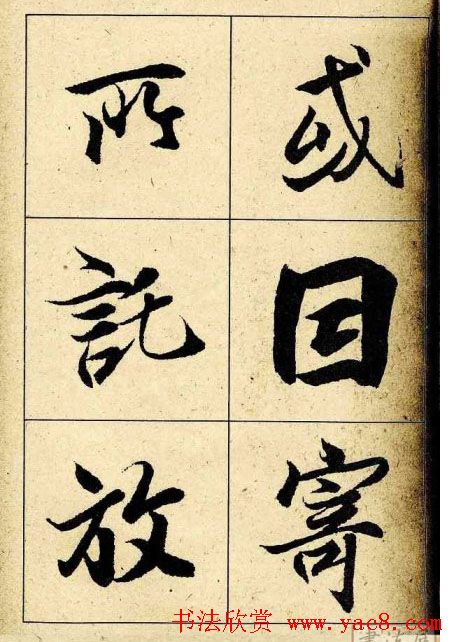 或因寄
所託放
书法欣赏 www.yac8.com